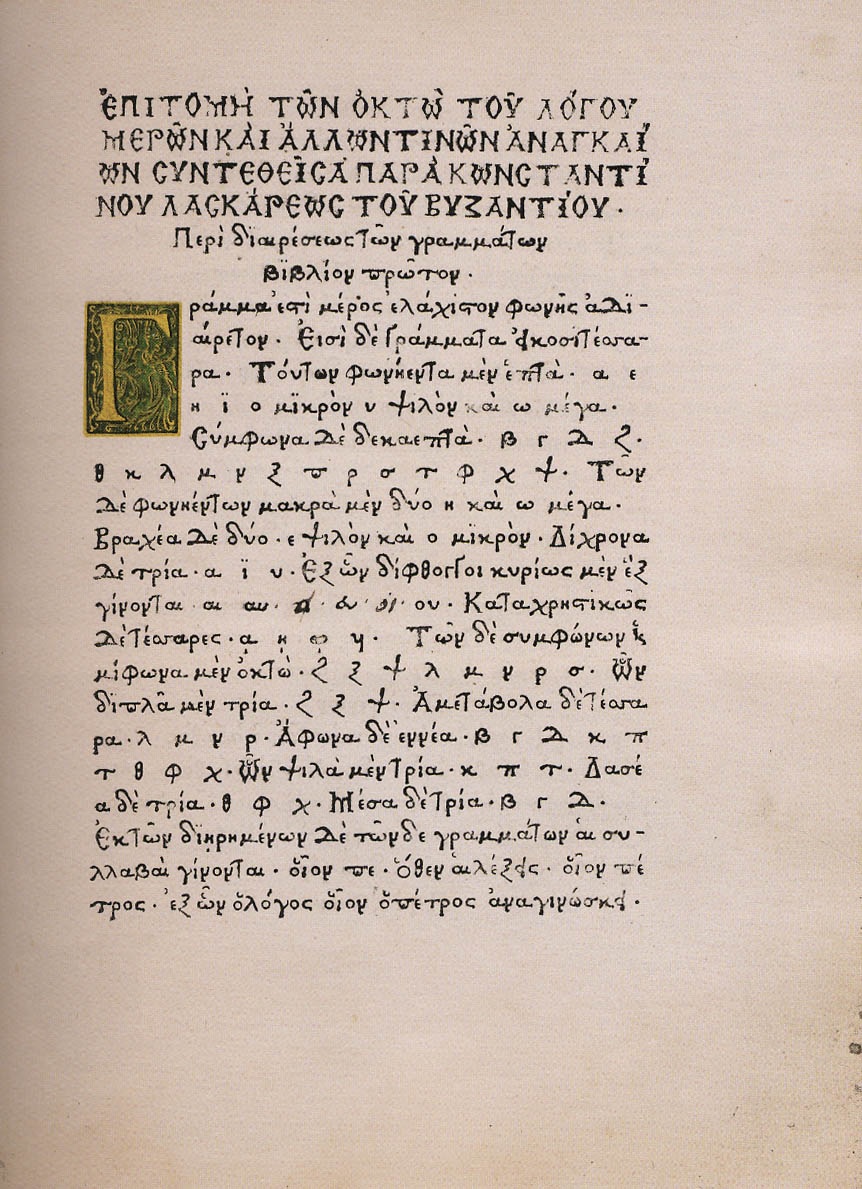 ἘΠΙΤΟΜῊ ΤΩ͂Ν ὈΚΤῺ ΤΟΥ͂ ΛΌΓΟΥ
ΜΕΡΩ͂Ν ΚΑῚ ἈΛΛΩΝΤΙΝΩ͂Ν ἈΝΑΓΚΑΊ
ΩΝ ϹΥΝΤΕΘΕΙ͂ϹΑ ΠΑΡᾺ ΚΩΝϹΤΑΝΤΊ
ΝΟΥ ΛΑϹΚΆΡΕΩϹ ΤΟΥ͂ ΒΥΖΑΝΤΊΟΥ·
Περὶ δϊαιρέσεως τῶν γραμμάτων
Βϊβλίον πρῶτον·
Γράμμα ἐστὶ μέρος ἐλάχιστον φωνῆς ἀδϊ-
αίρετον· Εἰσὶ δὲ Γράμματα εἰκοσιτέσσα-
ρα· Τούτων φωνήεντα μὲν ἑπτὰ· α ε
η ϊ ο μϊκρὸν υ ψιλὸν καὶ ω μέγα·
Σύμφωνα δὲ δεκαεπτὰ· β γ δ ζ·
θ κ λ μ ν ξ π ρ σ τ φ χ ψ· Τῶν
δὲ φωνηέντων μακρὰ μὲν δύο η καὶ ω μέγα·
Βραχέα δὲ δύο· ε ψιλὸν καὶ ο μϊκρὸν· Δίχρονα
δὲ τρία· α ϊ υ· Ἐξ ὧν δίφθογγοι κυρίως μὲν ἓξ
γίνονται αι αυ· ει ευ οι ου· Καταχρηστικῶς
δὲ τέσσαρες· ᾳ ῃ ῳ υι· Τῶν δὲ συμφώνων ἡ
μίφωνα μὲν ὀκτὼ· ζ ξ ψ λ μ ν ρ σ· Ὧν
διπλᾶ μὲν τρία· ζ ξ ψ· Ἀμετάβολα δὲ τέσσα
ρα· λ μ ν ρ· Ἄφωνα δὲ ἐννέα· β γ δ κ π
τ θ φ χ· Ὧν ψιλὰ μὲν τρία· κ π τ· Δασέ
α δὲ τρία· θ φ χ· Μέσα δὲ τρία· β γ δ·
Ἐκ τῶν δϊῃρημένων δὲ τῶνδε γραμμάτων αἱ συ-
λλαβαὶ γίνονται· οἷον πε· ὅθεν αἱ λέξεις· οἷον πέ
τρος· ἐξ ὧν ὁ λόγος οἷον ὁ πέτρος ἀναγινώσκει·